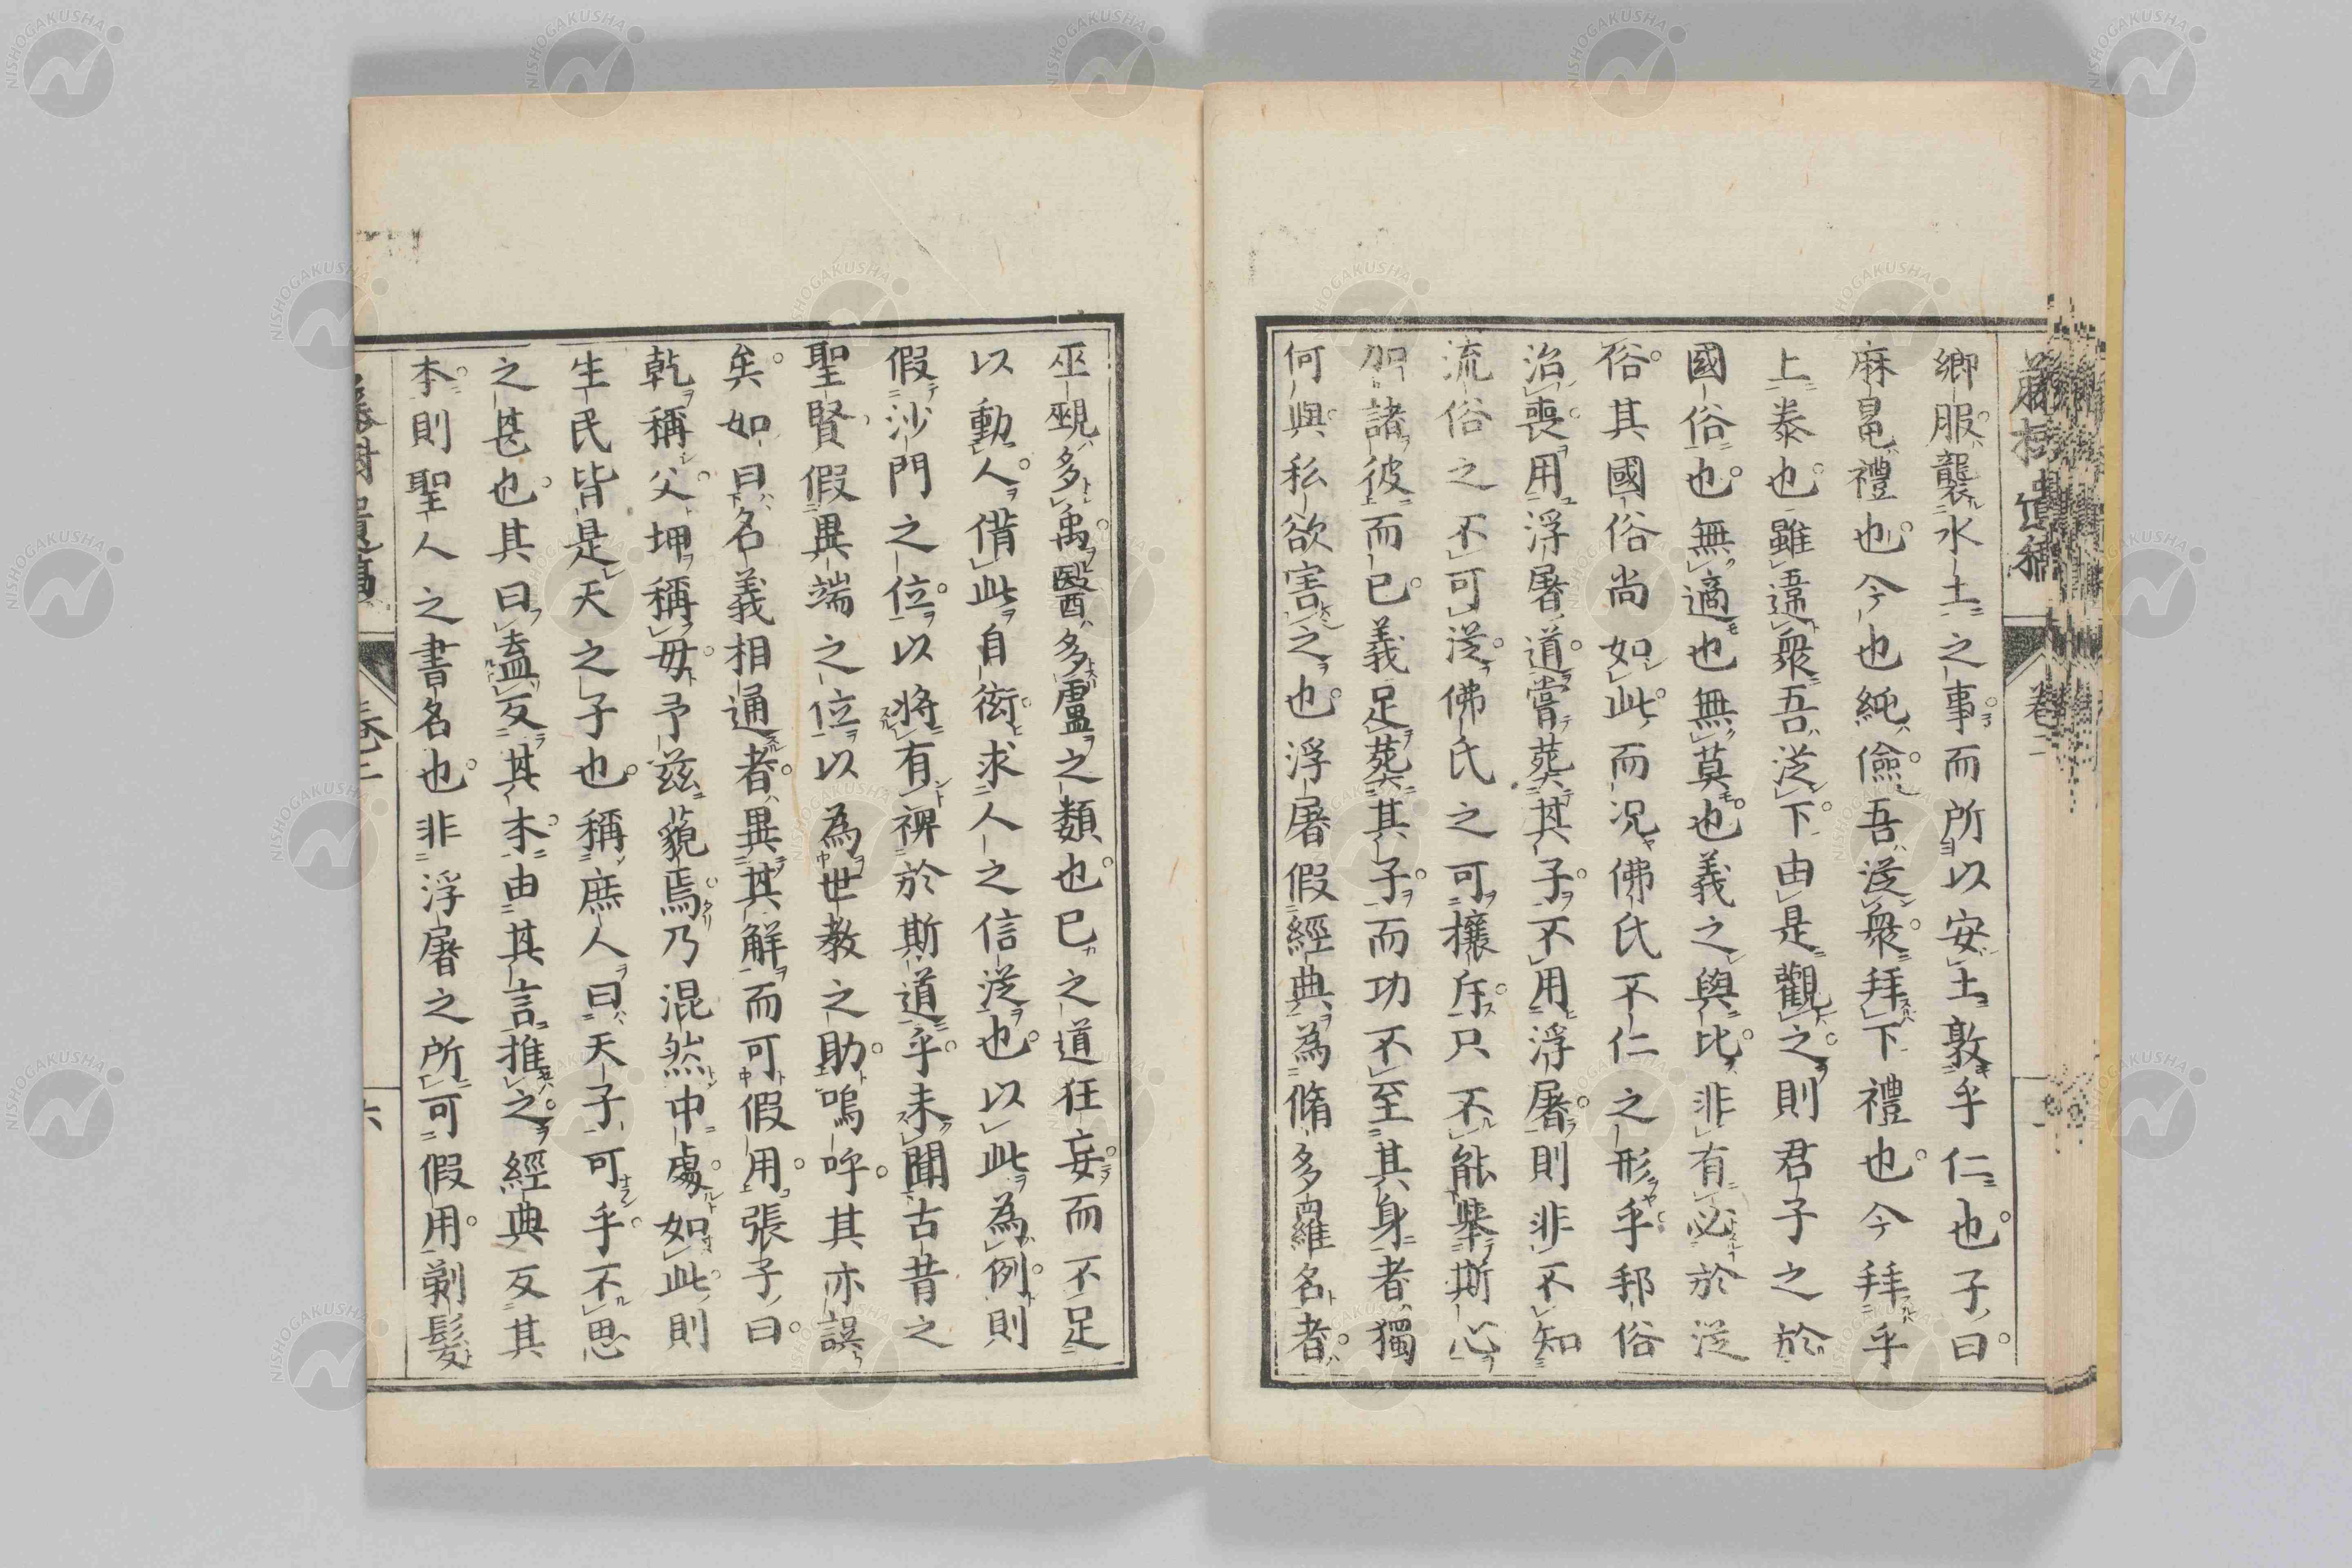 鄉服襲水土之事而所以安土敦乎仁也子曰
麻冕禮也今也純儉吾從衆拜下禮也今拜乎
上泰也雖違衆吾從下由是觀之則君子之於
國俗也無適也無莫也義之與比非有必於從
俗其國俗尚如此而况佛氏不仁之形乎邦俗
治喪用浮屠道嘗葬其子不用浮屠則非不知
流俗之不可從佛氏之可攘斥只不能舉斯心
加諸彼而已義足葬其子而功不至其身者獨
何與私欲害之也浮屠假經典為脩多羅名者
巫覡多禹醫多盧之類也已之道狂妄而不足
以動人借此自衒求人之信從也以此為例則
假沙門之位以將有裨於斯道乎未聞古昔之
聖賢假異端之位以為世教之助嗚呼其亦誤
矣如曰名義相通者異其解而可假用張子曰
乾稱父坤稱母予茲藐焉乃混然中處如此則
生民皆是天之子也稱庶人曰天子可乎不思
之甚也其曰盍反其本由其言推之經典反其
本則聖人之書名也非浮屠之所可假用剃髮
卷二
六
NISHOGAKUSHA